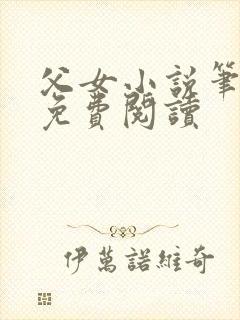 父女小説筆
免費閱讀
伊萬諾維奇